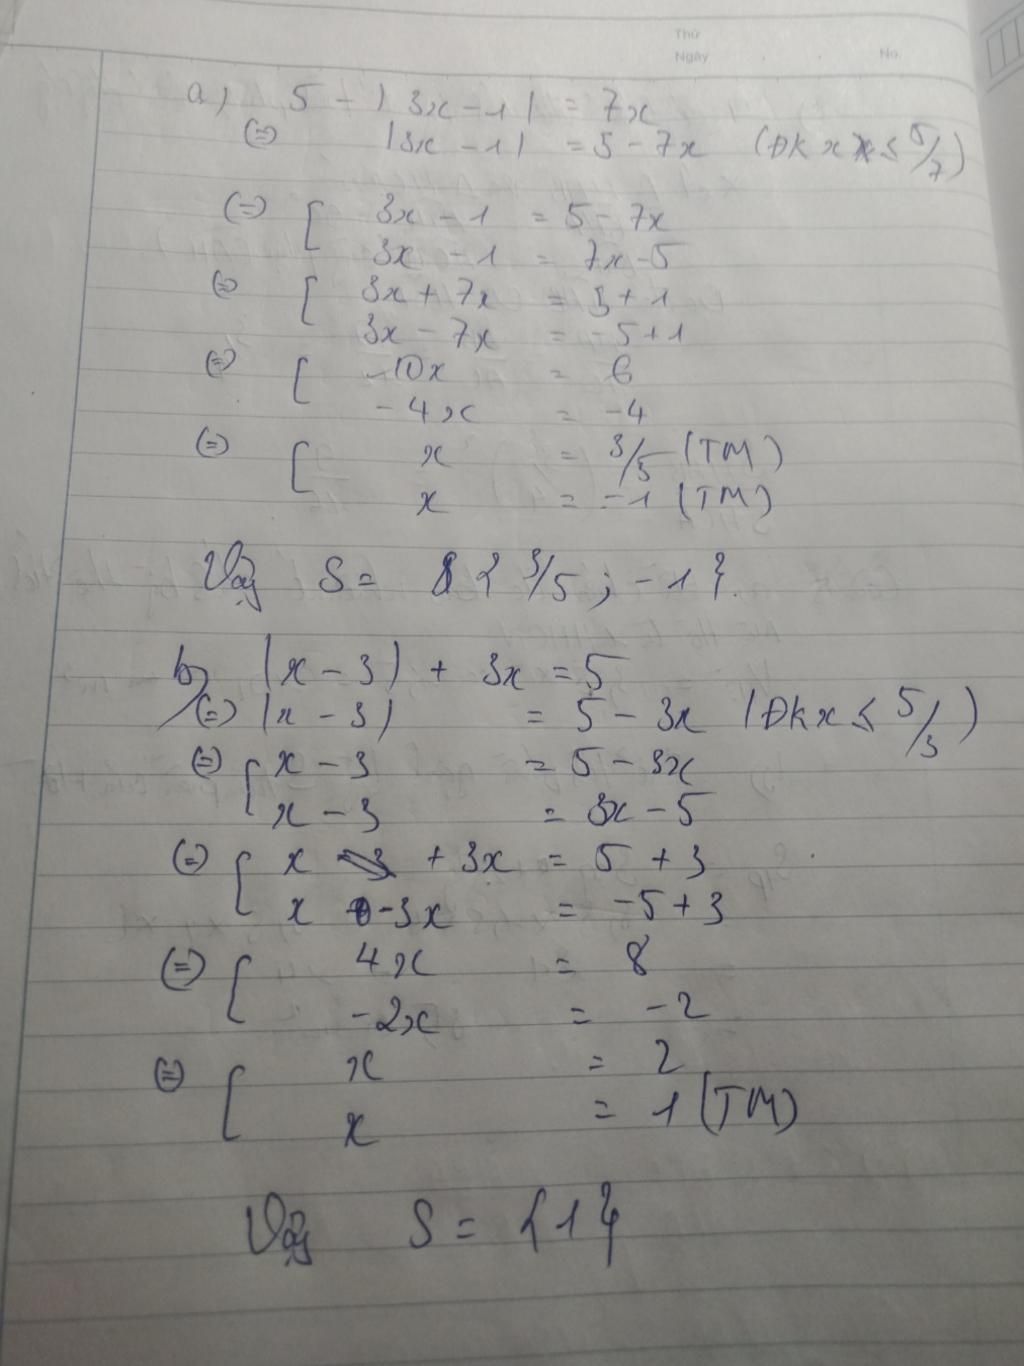 Thứ
Ngày No.
a) 5 - |3x - 1| = 7x
(=) |3x - 1| = 5 - 7x (ĐK x ≤ 5/7)
(=) [ 3x - 1 = 5 - 7x
3x - 1 = 7x - 5
(=) [ 3x + 7x = 5 + 1
3x - 7x = -5 + 1
(=) [ 10x = 6
-4x = -4
(=) [ x = 3/5 (TM)
x = -1 (TM)
Vậy S = { 3/5 ; -1 }.
b) |x - 3| + 3x = 5
(=) |x - 3| = 5 - 3x (ĐK x ≤ 5/3)
(=) [ x - 3 = 5 - 3x
x - 3 = 3x - 5
(=) [ x + 3x = 5 + 3
x - 3x = -5 + 3
(=) [ 4x = 8
-2x = -2
(=) [ x = 2
x = 1 (TM)
Vậy S = {1}